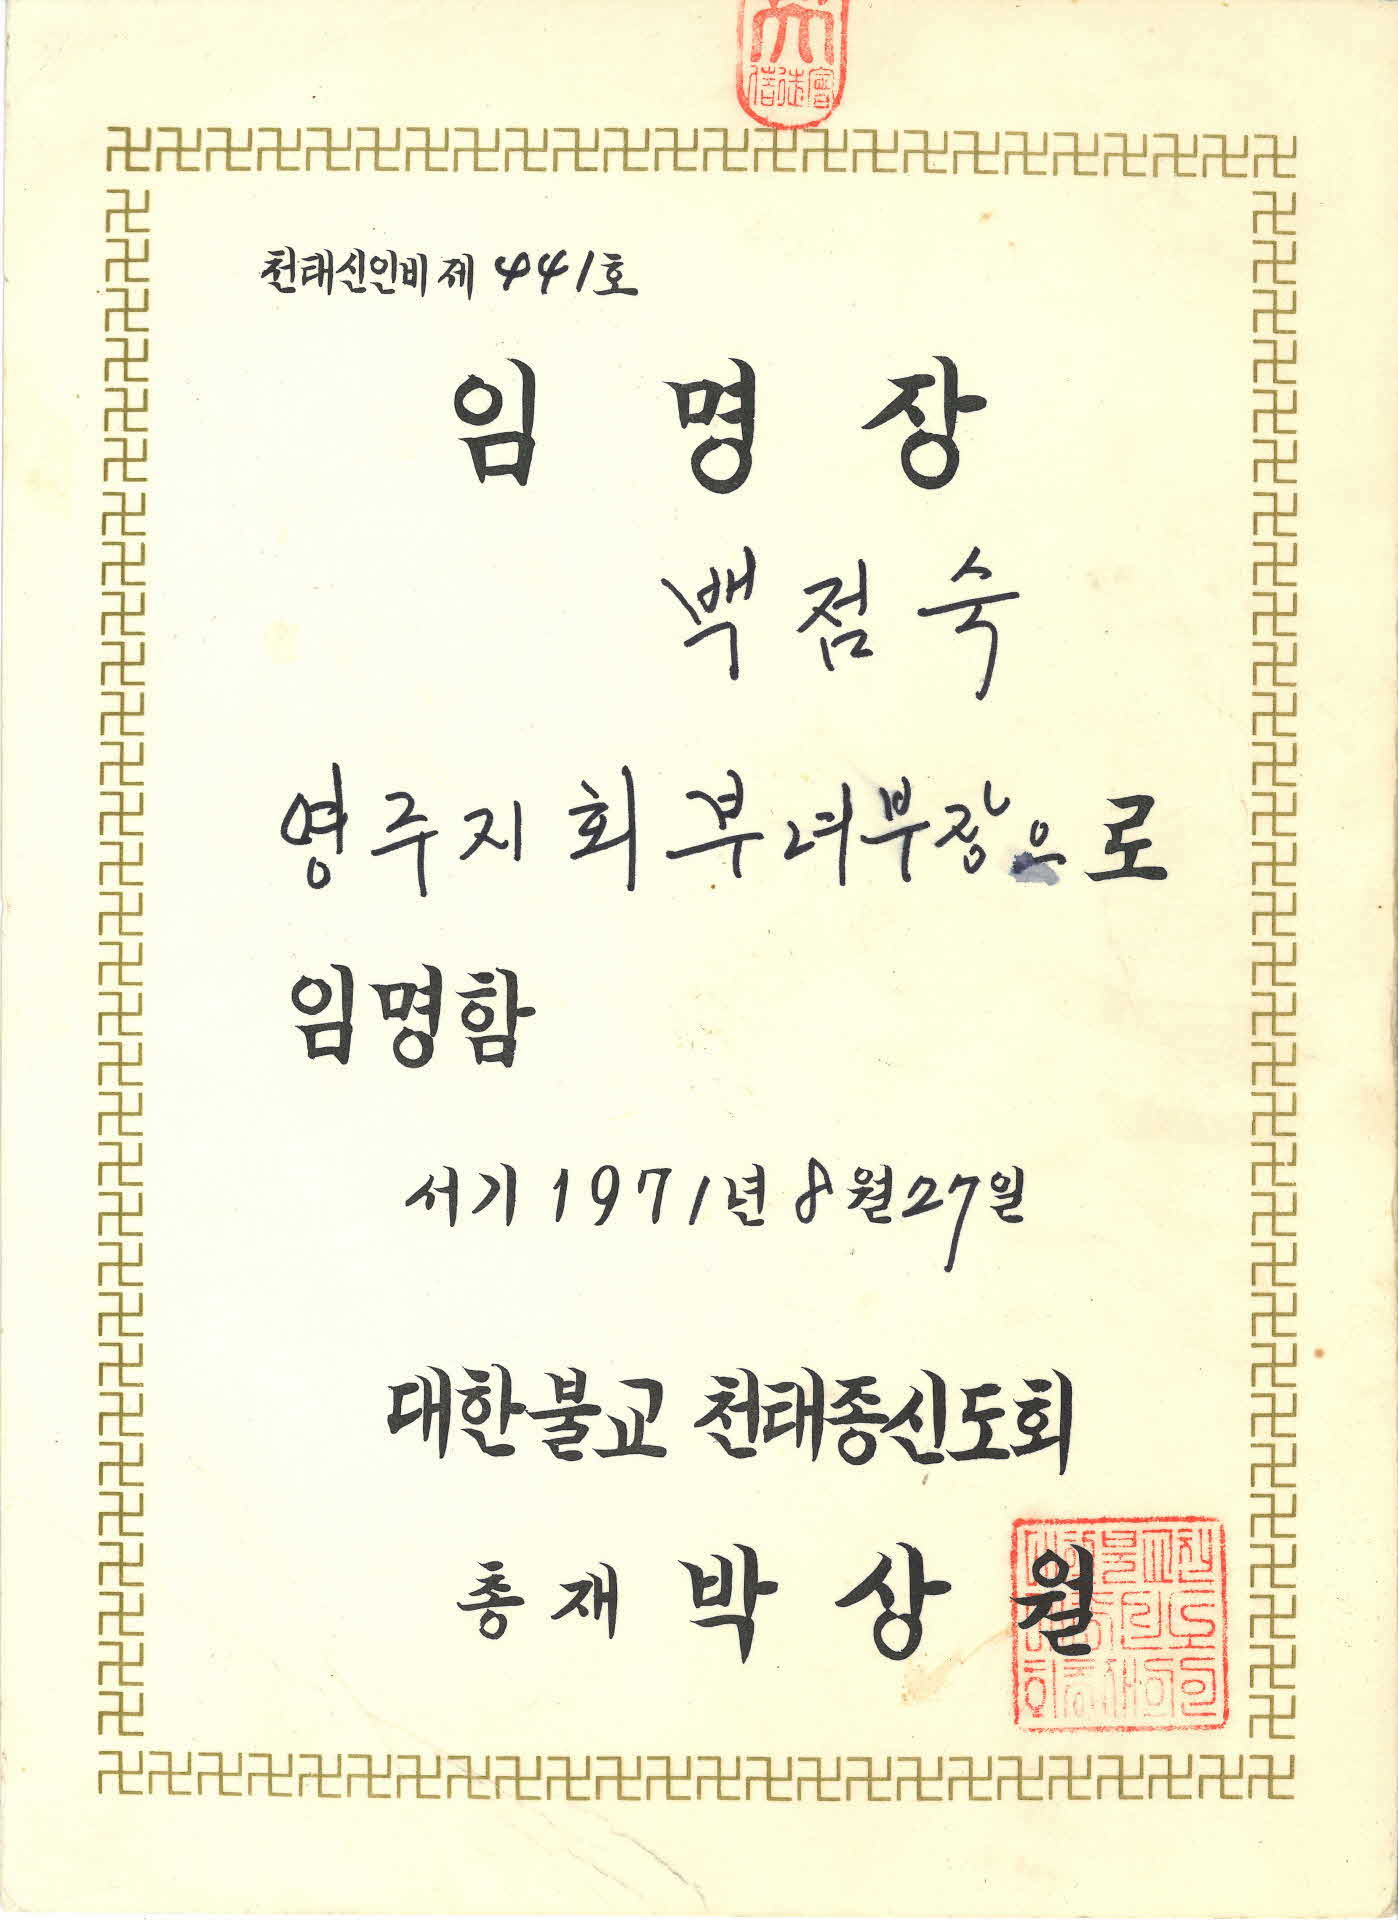 信徒會
천태신인비 제 441호
임 명 장
백 점 숙
영주지회 부녀부장으로
임명함
서기 1971년 8월 27일
대한불교 천태종신도회
총재 박 상 월